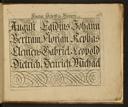 August Egidius Johann
Bertram Florian Kephas
Clemens Gabriel Leopold
Dietrich Heinrich Michael